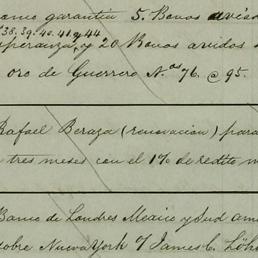 como garantía 5. Bonos avíos
38. 39. 40. 41 y 44
Esperanza, y 20 Bonos avíados
oro de Guerrero Nos 76. @ 95.
Rafael Beraza (renovacion) para
tres meses con el 1% de redito m
Banco de Londres Mexico y Sud Ame
sobre Nueva York c/ James C. Löh